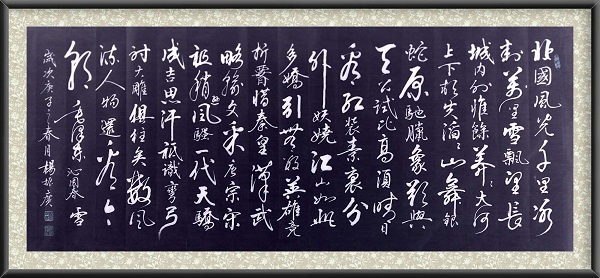 北國風光千里冰
封萬里雪飄望長
城内外惟餘莽〻大河
上下頓失滔〻山舞銀
蛇原馳臘象欲與
天公試比高須晴日
看紅裝素裹分
外妖嬈江山如此
多嬌引無數英雄競
折腰惜秦皇漢武
略輸文采唐宗宋
祖稍遜風騷一代天驕
成吉思汗祇識彎弓
射大雕俱往矣數風
流人物還看今
朝 毛澤東 沁園春 雪
歲次庚子之春月楊振廣